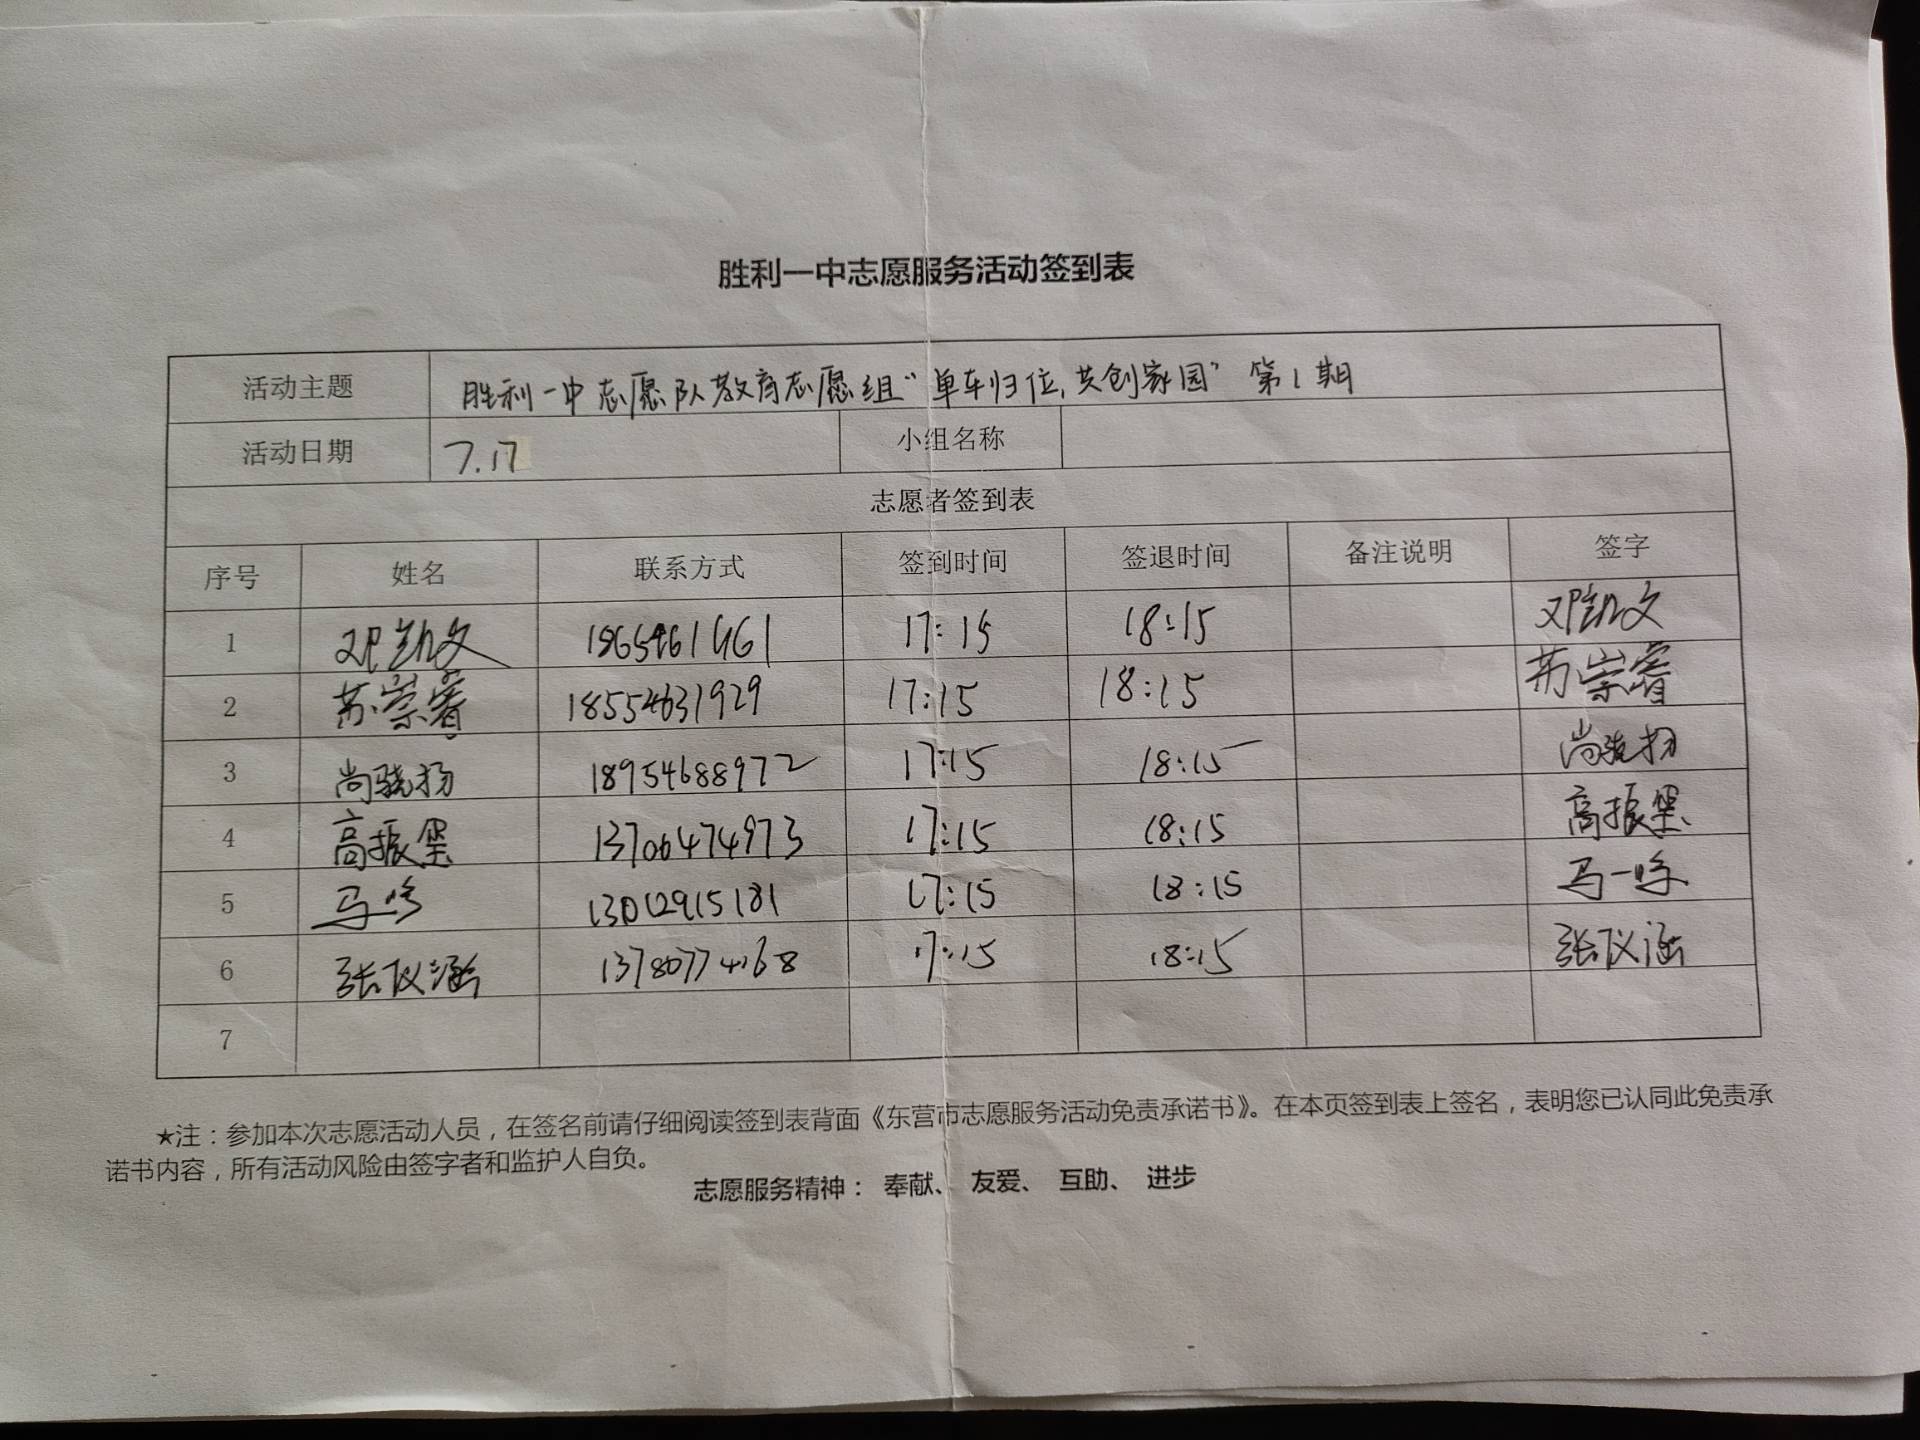 胜利一中志愿服务活动签到表
活动主题 胜利一中志愿队教育志愿组“单车归位,共创家园”第1期
活动日期 7.17 小组名称
志愿者签到表
序号 姓名 联系方式 签到时间 签退时间 备注说明 签字
1 邓凯文 17:15 18:15 邓凯文
2 苏崇睿 18554631929 17:15 18:15 苏崇睿
3 尚骁扬 18954688972 17:15 18:15 尚骁扬
4 高振堡 13706474973 17:15 18:15 高振堡
5 13012915181 17:15 18:15 马一鸣
6 张仪涵 13780774168 17:15 18:15 张仪涵
7
★注：参加本次志愿活动人员，在签名前请仔细阅读签到表背面《东营市志愿服务活动免责承诺书》。在本页签到表上签名，表明您已认同此免责承
诺书内容，所有活动风险由签字者和监护人自负。
志愿服务精神： 奉献、 友爱、 互助、 进步